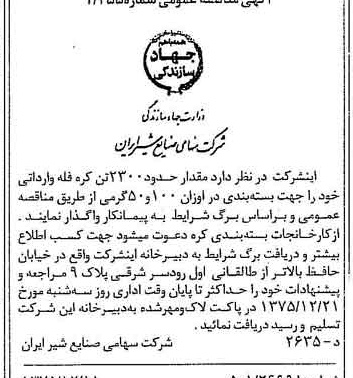 آگهی مناقصه عمومی شماره
همه با هم
جهاد
سازندگی
وزارت جهاد سازندگی
شرکت سهامی صنایع شیر ایران
اینشرکت در نظر دارد مقدار حدود ۲۳۰۰تن کره فله وارداتی
خود را جهت بسته‌بندی در اوزان ۱۰۰و۵۰گرمی از طریق مناقصه
عمومی و براساس برگ شرایط به پیمانکار واگذار نمایند .
ازکارخانجات بسته‌بندی کره دعوت میشود جهت کسب اطلاع
بیشتر و دریافت برگ شرایط به دبیرخانه اینشرکت واقع در خیابان
حافظ بالاتر از طالقانی اول رودسر شرقی پلاک ۹ مراجعه و
پیشنهادات خود را حداکثر تا پایان وقت اداری روز سه‌شنبه مورخ
۱۳۷۵/۱۲/۲۱ در پاکت لاک‌ومهرشده به‌دبیرخانه این شرکت
تسلیم و رسید دریافت نمائید .
د-۲۶۳۵ شرکت سهامی صنایع شیر ایران